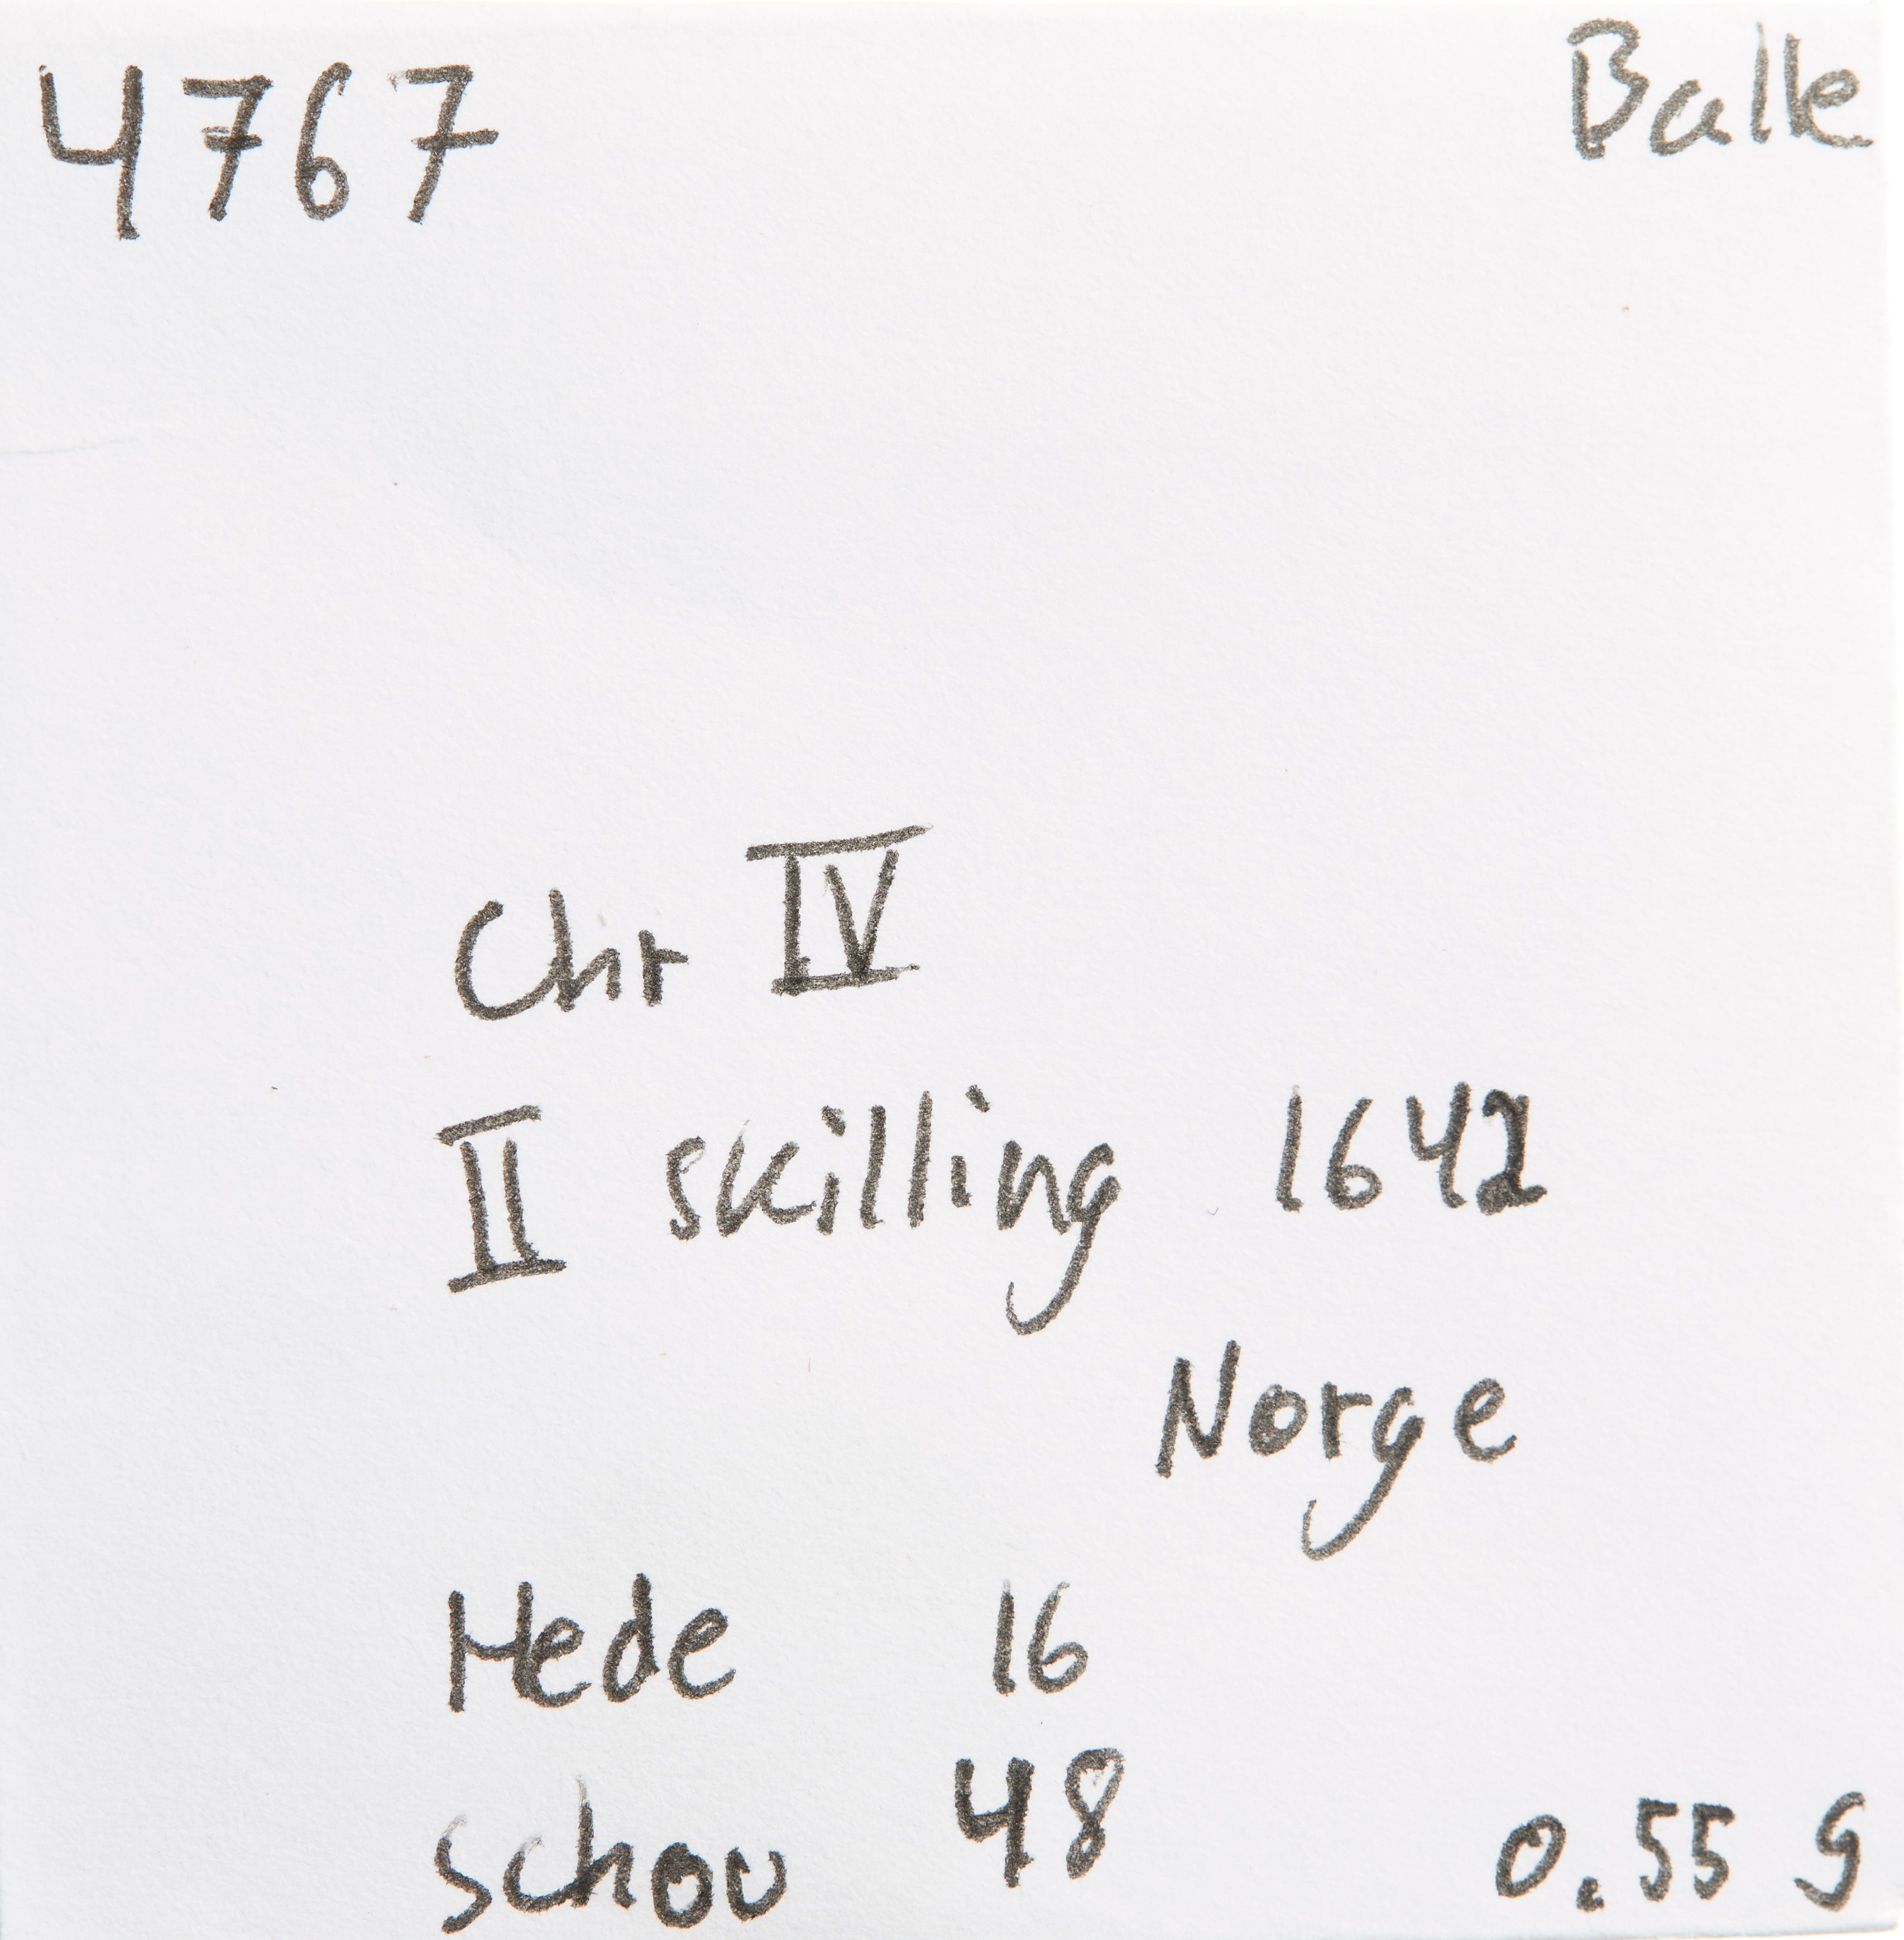 4767
Balle
Chr IV
II skilling 1642
Norge
Hede 16
Schou 48
0.55 g